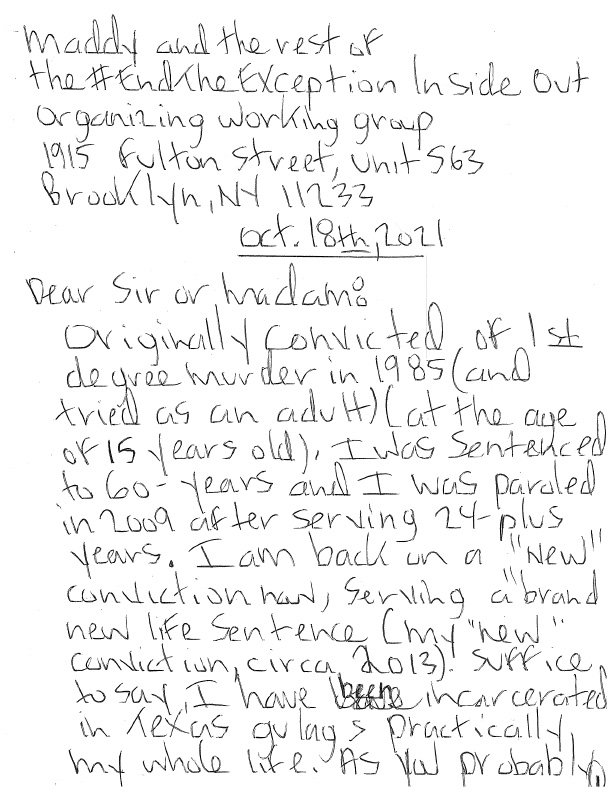 Maddy and the rest of
the #EndTheException Inside Out
organizing working group
1915 Fulton Street, Unit 563
Brooklyn, NY 11233
Oct. 18th, 2021
Dear Sir or Madam:
Originally convicted of 1st
degree murder in 1985 (and
tried as an adult) (at the age
of 15 years old), I was sentenced
to 60-years and I was paroled
in 2009 after serving 24-plus
years. I am back on a "new"
conviction now, serving a "brand
new life sentence (my "new"
conviction, circa, 2013)! Suffice,
to say, I have been incarcerated
in Texas gulags practically,
my whole life. As you probably,